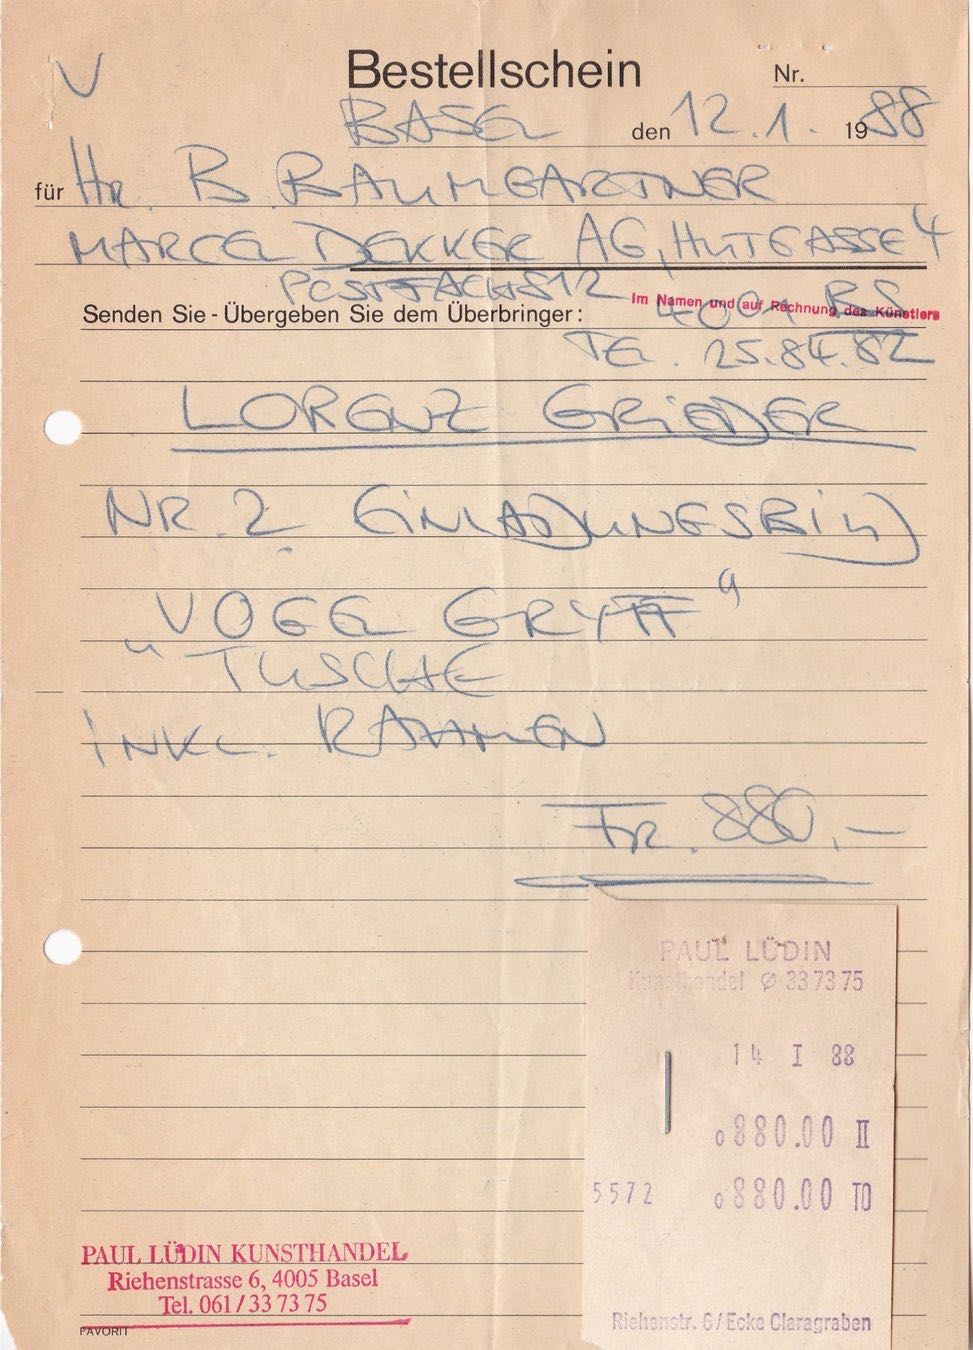 V
Bestellschein Nr.
BASEL den 12.1. 1988
für Hr. B. BAUMGARTNER
MARCEL DEKKER AG, HUTGASSE 4
POSTFACH 812
4001 BS
Im Namen und auf Rechnung des Künstlers
Senden Sie - Übergeben Sie dem Überbringer:
TEL. 25.84.82
LORENZ GRIEDER
NR. 2 EINLADUNGSBILD
„VOGEL GRYFF“
TUSCHE
INKL. RAHMEN
Fr. 880.—
PAUL LÜDIN
Kunsthandel ∅ 33 73 75
14 I 88
0880.00 II
5572 0880.00 TO
Riehenstr. 6/Ecke Claragraben
PAUL LÜDIN KUNSTHANDEL
Riehenstrasse 6, 4005 Basel
Tel. 061/33 73 75
FAVORIT